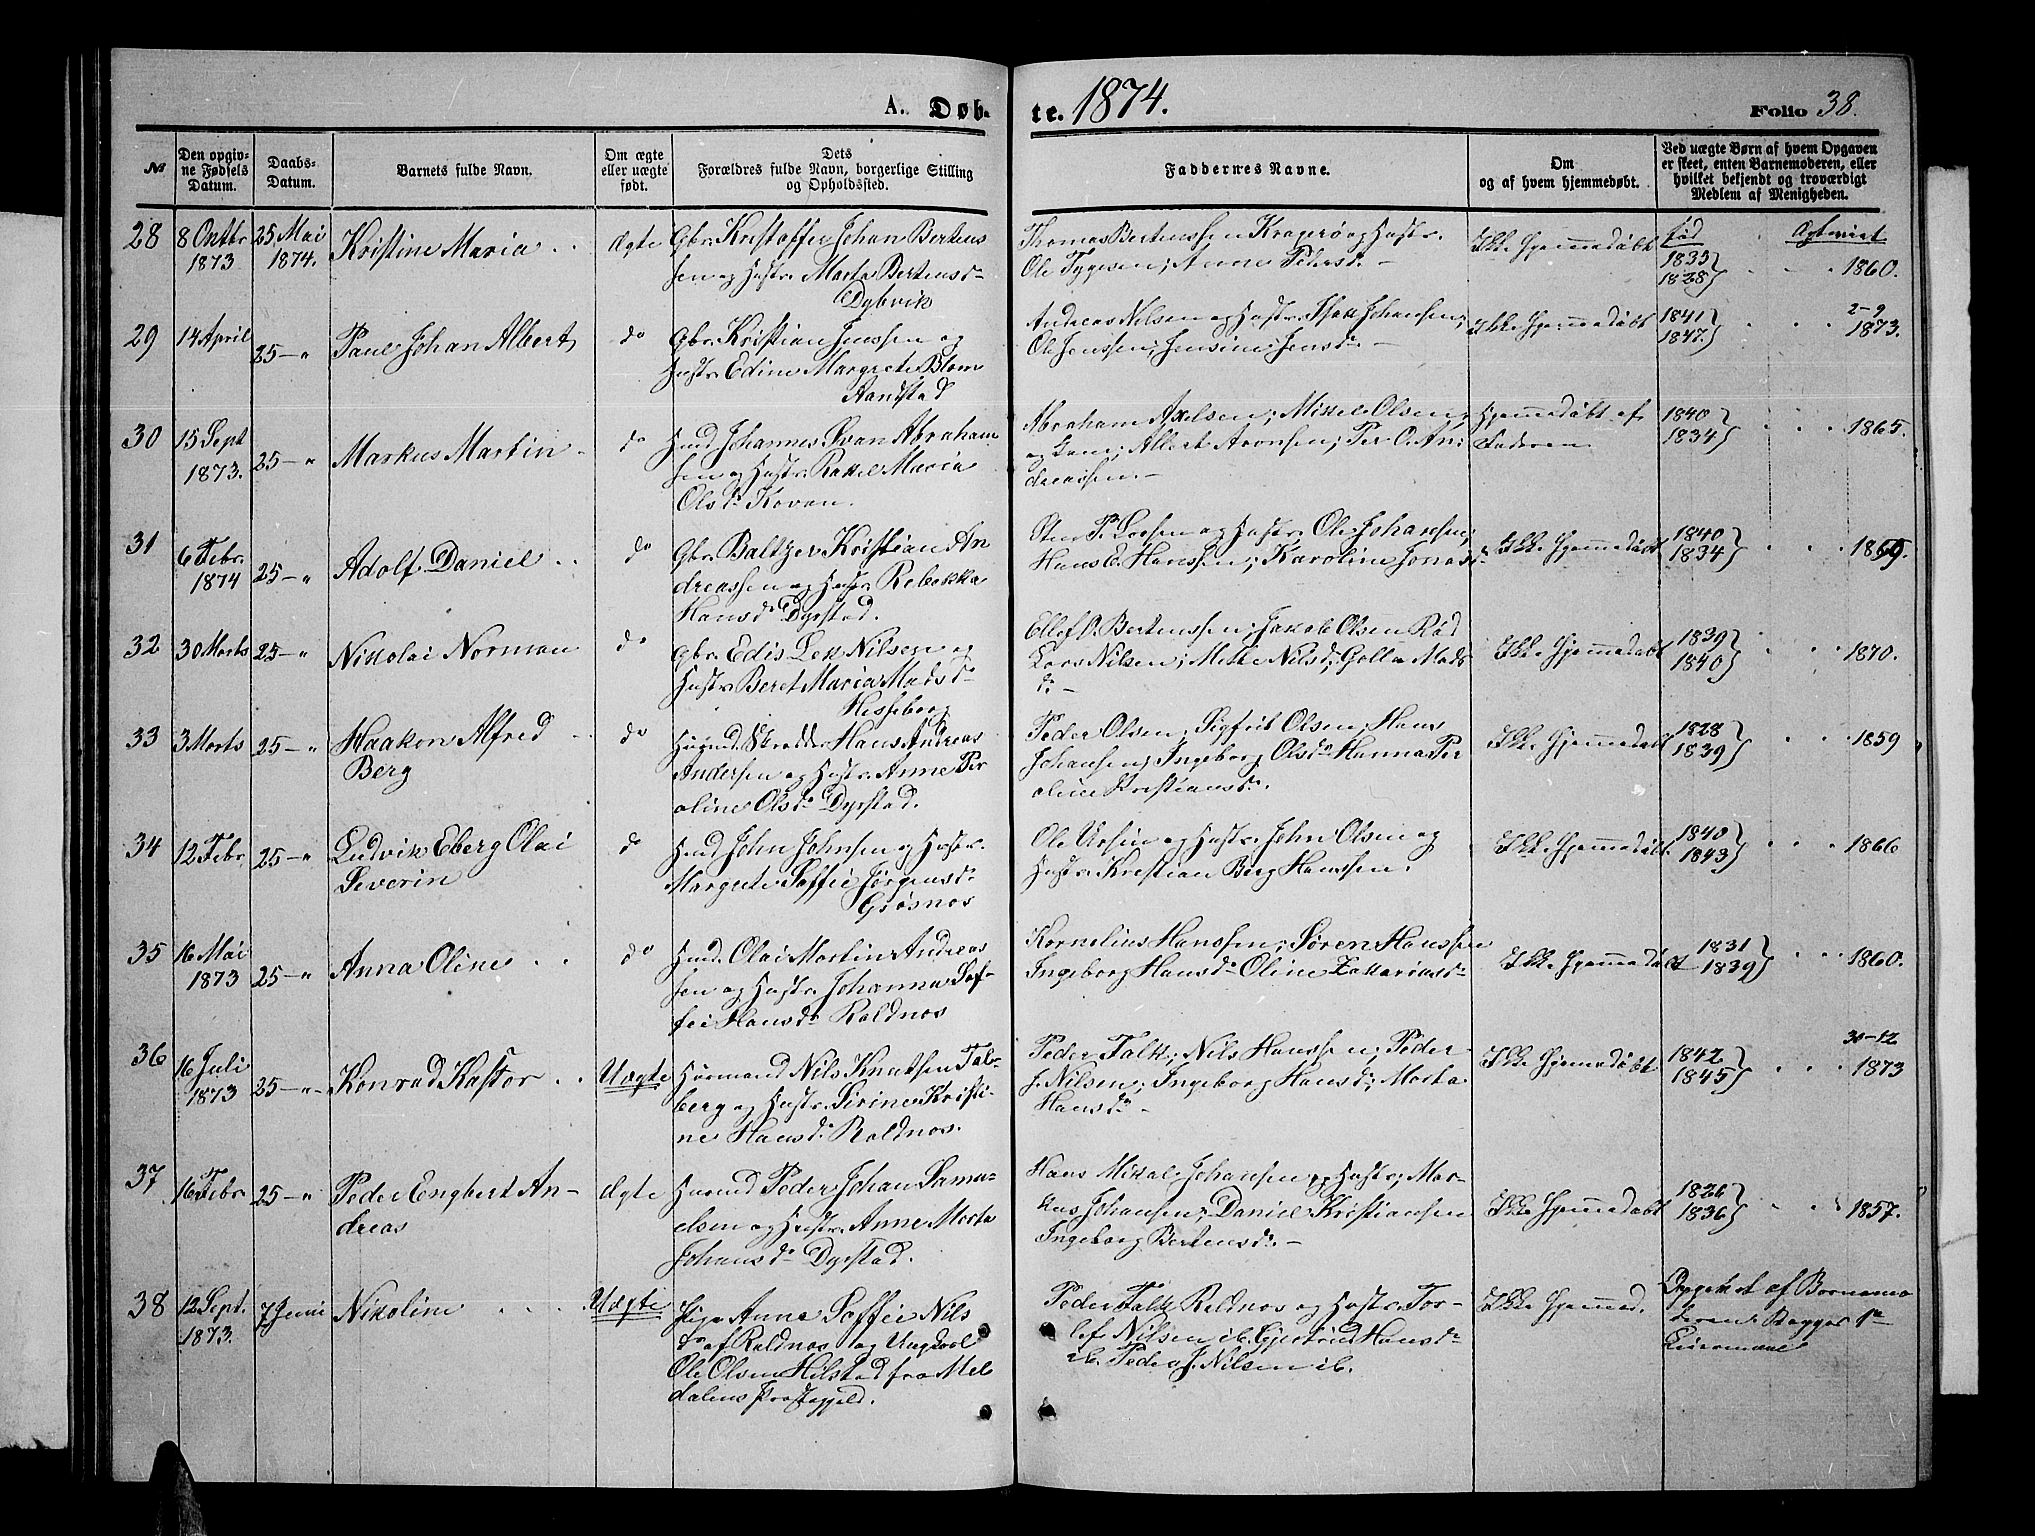 A. Døb-
te. 1874.
Folio 38.
№
Den opgiv-
ne Fødsels
Datum.
Daabs-
Datum.
Barnets fulde Navn.
Om ægte
eller uægte
født.
Dets
Forældres fulde Navn, borgerlige Stilling
og Opholdssted.
Faddernes Navne.
Om
og af hvem hjemmedøbt.
Ved uægte Børn af hvem Opgaven
er skeet, enten Barnemoderen, eller
hvilket bekjendt og troværdigt
Medlem af Menigheden.
28
8
1873
25 Mai
1874.
Kristine Maria
Ægte
Gbr. Kristoffer Johan Bertens
sen og Hustr. Marta Bertensd.
Dybvik
Thomas Bertenssen Kragerø og Hustr.
Ole Tygesen; Anne Pedersd. –
Ikke Hjemmedøbt
Fød
1835
1828
1860.
29
14 April
25 — "
Paul Johan Albert
do
Gbr. Kristian Jenssen og
Hustr. Edine Margrete Blom
Aandstad
Andreas Nilsen og Hustr. Isak Johansen;
Ole Jenssen; Jensine Jensd. –
Ikke Hjemmedøbt
1841
1847.
2-9
1873.
30
15 Sept
1873.
25 — "
Markus Martin
do
Hmd Johannes Svan Abraham
sen og Hustr. Rakel Maria
Olsd.
Abraham Axelsen; Mikkel Olsen
og Albert Aronsen; Per O. An
dreassen. –
Hjemmedøbt af
Faderen
1840
1834
1865.
31
6 Febr.
1874
25 — "
Adolf Daniel
do
Gbr. Baltzer Kristian An
dreassen og Hustr. Rebekka
Hansd. Dyrstad.
P. Larsen og Hustr. Ole Johansen;
Hans E. Hanssen; Karoline Jonasd.
Ikke Hjemmedøbt
1840
1834
1869.
32
30 Marts
25 — "
Nikolai Norman
do
Gbr. Edis Lek Nilsen og
Hustr. Beret Maria Madsd.
Hesseberg
Ellef O. Bertenssen; Jakob Olsen Rød
Lars Nilsen; Mette Nilsd; Golla Mads
d. –
Ikke Hjemmedøbt
1839
1840
1870.
33
3 Marts
25 — "
Haakon Alfred
Berg
do
Hans Andreas
Andersen og Hustr. Anne Per
oline Olsd. Dyrstad.
Peder Olsen; Sigfrit Olsen; Hans
Johansen; Ingeborg Olsd. Hanna Per
oline Kristiansd.
Ikke Hjemmedøbt
1828
1839
1859
34
12 Febr
25 — "
Ludvik Eberg Olai
Severin
do
Hmd John Johnsen og Hustr.
Margrete Soffie Jørgensd.
Grøsnes
Ole Ursin og Hustr. John Olsen og
Hustr. Kristian Berg Hanssen.
Ikke Hjemmedøbt
1840
1843
1866
35
16 Mai
1873
25 — "
Anna Oline
do
Hmd. Olai Martin Andreas
sen og Hustr. Johanna Sof-
fie Hansd. Roldnes
Kornelius Hanssen; Søren Hanssen
Ingeborg Hansd. Oline Zakariasd.
Ikke Hjemmedøbt
1831
1839
1860.
36
16 Juli
1873
25 — "
Konrad Kastor
Uægte
Huusmand Nils Knutsen Tal-
berg og Hustr. Sirine Kristi-
ne Hansd. Roldnes.
Peder Falk; Nils Hanssen; Peder
J. Nilsen; Ingeborg Hansd; Marta
Hansd. –
Ikke Hjemmedøbt
1842
1845
30-12
1873
37
16 Febr
25 — "
Peder Engbert An-
dreas
Ægte
Peder Johan Samu-
elsen og Hustr. Anne Marta
Johansd. Dyrstad.
Hans Mikal Johansen og Hustr; Mar-
kus Johansen; Daniel Kristiansen
Ingeborg Bertensd. –
Ikke Hjemmedøbt
1826
1836
1857.
38
12 Sept.
1873.
7 Juni
Nikoline
Uægte
Pige Anne Soffie Nils
d. af Roldnes og Ungkarl
Ole Olsen Hilstad fra Mel
dalens Prostegjeld.
Peder Falk Roldnes og Hustr. Tor-
lef Nilsen ib. Gjertrud Hansd.
ib. Peder J. Nilsen ib.
Ikke Hjemmed.
Opgivet af Barnemo
deren. Begges 1ste
Leiermaal